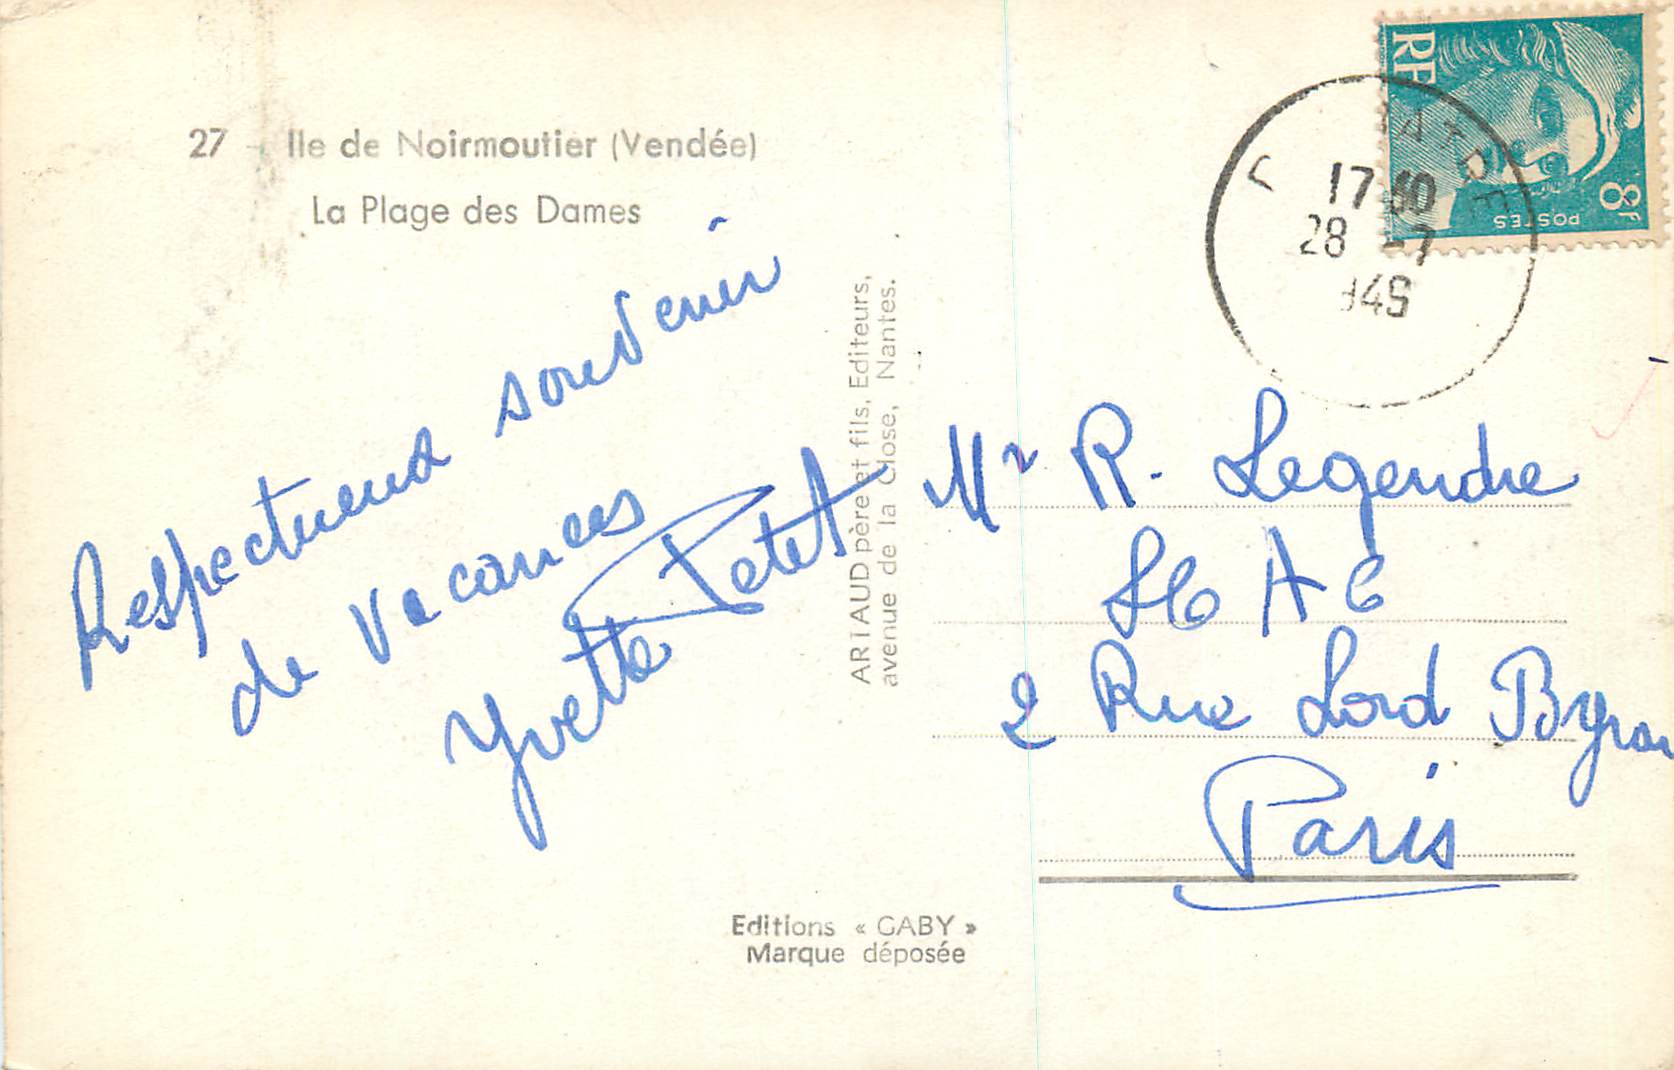 27 - Ile de Noirmoutier (Vendée)
La Plage des Dames
Respectueux souvenir
de vacances
Yvette Petet
ARTAUD père et fils, Editeurs,
avenue de la Close, Nantes.
Editions « GABY »
Marque déposée
RF
8F
POSTES
17 30
28 -7
949
Mr R. Legendre
2 Rue Lord Byron
Paris